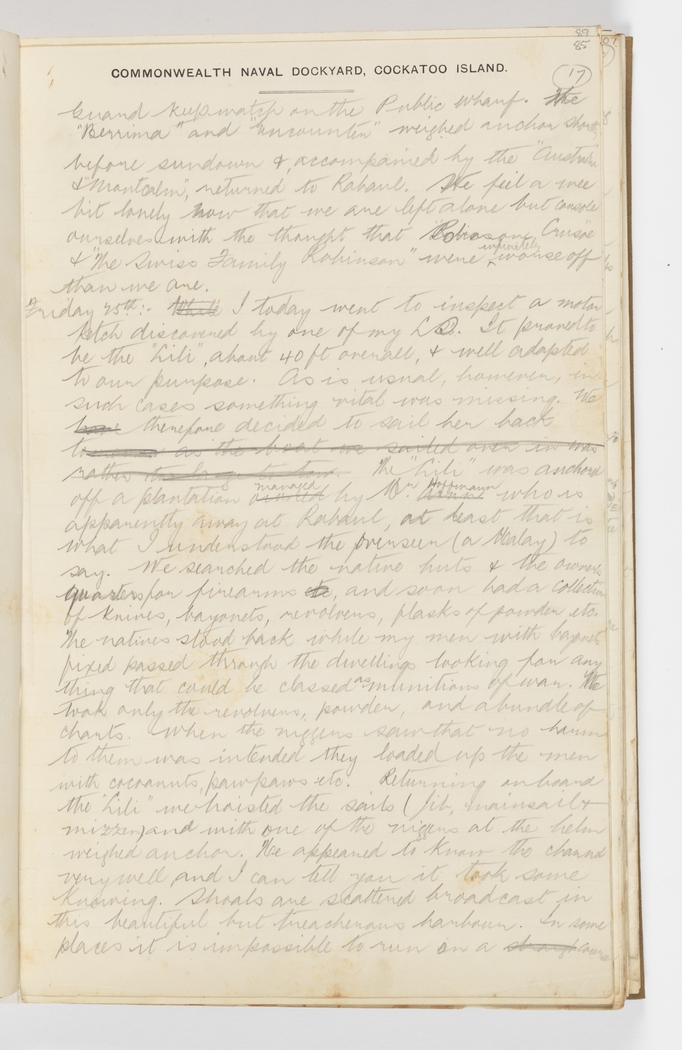 87
85
COMMONWEALTH NAVAL DOCKYARD, COCKATOO ISLAND.
17
Guard kept watch on the Public Wharf. The
"Berrima" and "Encounter" weighed anchor short
before sundown &, accompanied by the "Australia
& "Montcalm", returned to Rabaul. We feel a wee
bit lonely now that we are left alone but console
ourselves with the thought that "Robinson Crusoe
& "The Swiss Family Robinson" were infinitely worse off
than we are.
Friday 25th:- I today went to inspect a motor
ketch discovered by one of my L.S. It proved to
be the "Lili", about 40 ft overall, & well adapted
to our purpose. As is usual, however, in
such cases something vital was missing. We
therefore decided to sail her back
to as the boat we sailed over in was
rather too large to tow. The "Lili" was anchored
off a plantation owned managed by Mr. Hoffmann who is
apparently away at Rabaul, at least that is
what I understood the overseer (a Malay) to
say. We searched the native huts & the owners
quarters for firearms etc, and soon had a collection
of knives, bayonets, revolvers, flasks of powder etc.
The natives stood back while my men with bayonets
fixed passed through the dwellings looking for any
thing that could be classed as munitions of war. We
took only the revolvers, powder, and a bundle of
charts. When the niggers saw that no harm
to them was intended they loaded up the men
with cocoanuts, pawpaws etc. Returning on board
the "Lili" we hoisted the sails (jib, mainsail &
mizzen) and with one of the nigers at the helm
weighed anchor. He appeared to know the channel
very well and I can tell you it took some
knowing. Shoals are scattered broadcast in
this beautiful but treacherous harbour. In some
places it is impossible to run on a straight course